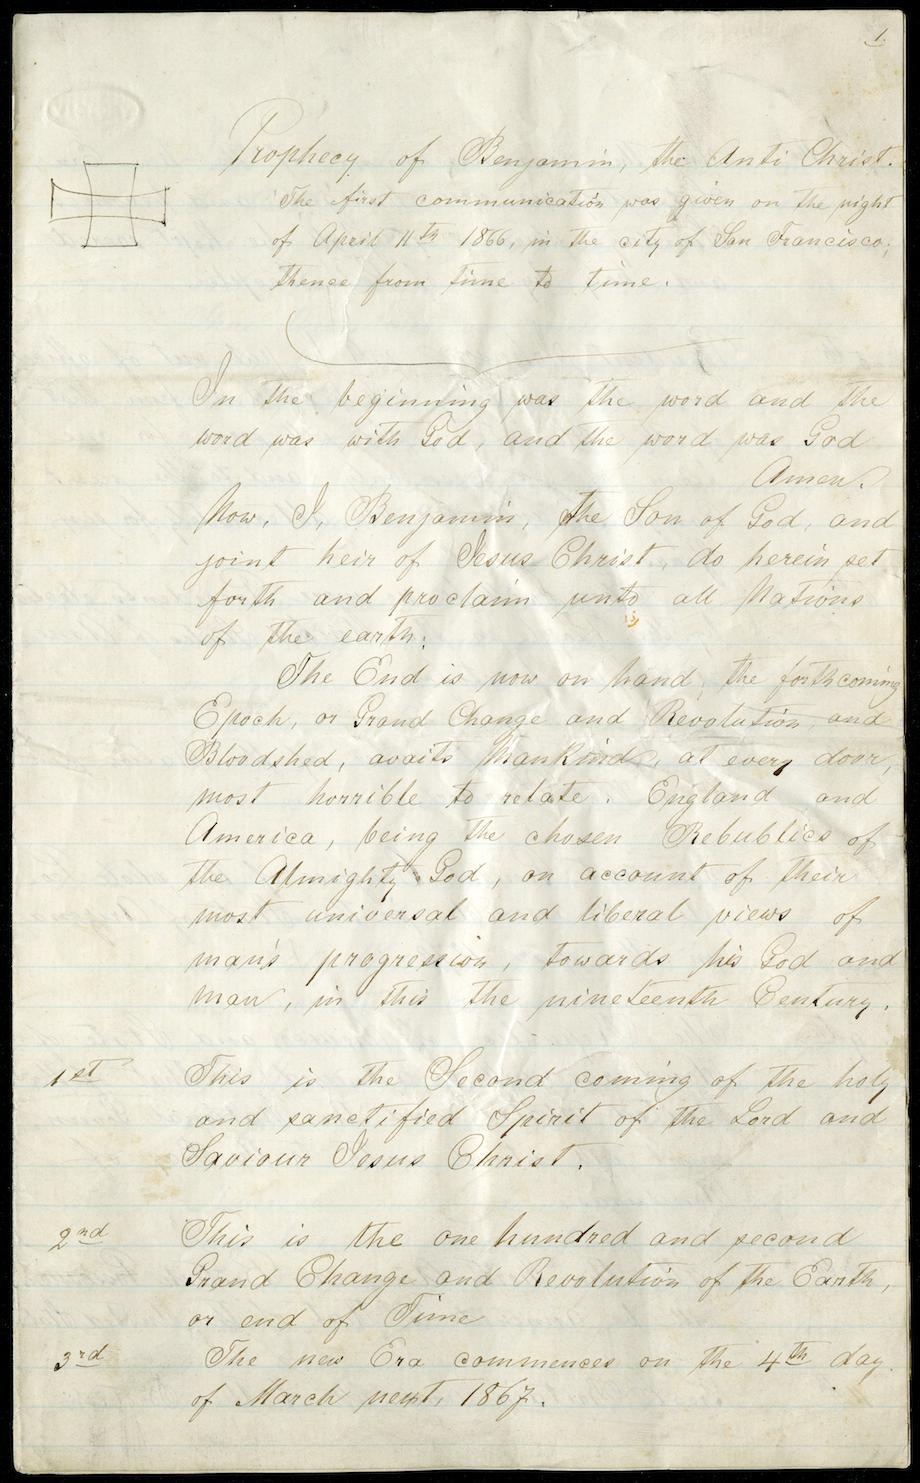 1.
Prophecy of Benjamin, the Anti Christ.
The first communication was given on the night
of April 11th 1866, in the city of San Francisco;
thence from time to time.
In the beginning was the word and the
word was with God, and the word was God
Amen.
Now, I, Benjamin, the Son of God, and
joint heir of Jesus Christ, do herein set
forth and proclaim unto all Nations
of the earth:
The End is now on hand, the forthcoming
Epoch, or Grand Change and Revolution, and
Bloodshed, avaits Mankind, at every door,
most horrible to relate. England and
America, being the chosen Rebublics of
the Almighty God, on account of their
most universal and liberal views of
man's progression, towards his God and
man, in this the nineteenth Century.
1st This is the Second coming of the holy
and sanctified Spirit of the Lord and
Saviour Jesus Christ.
2nd This is the one hundred and second
Grand Change and Revolution of the Earth,
or end of Time
3rd The new Era commences on the 4th day
of March next, 1867.